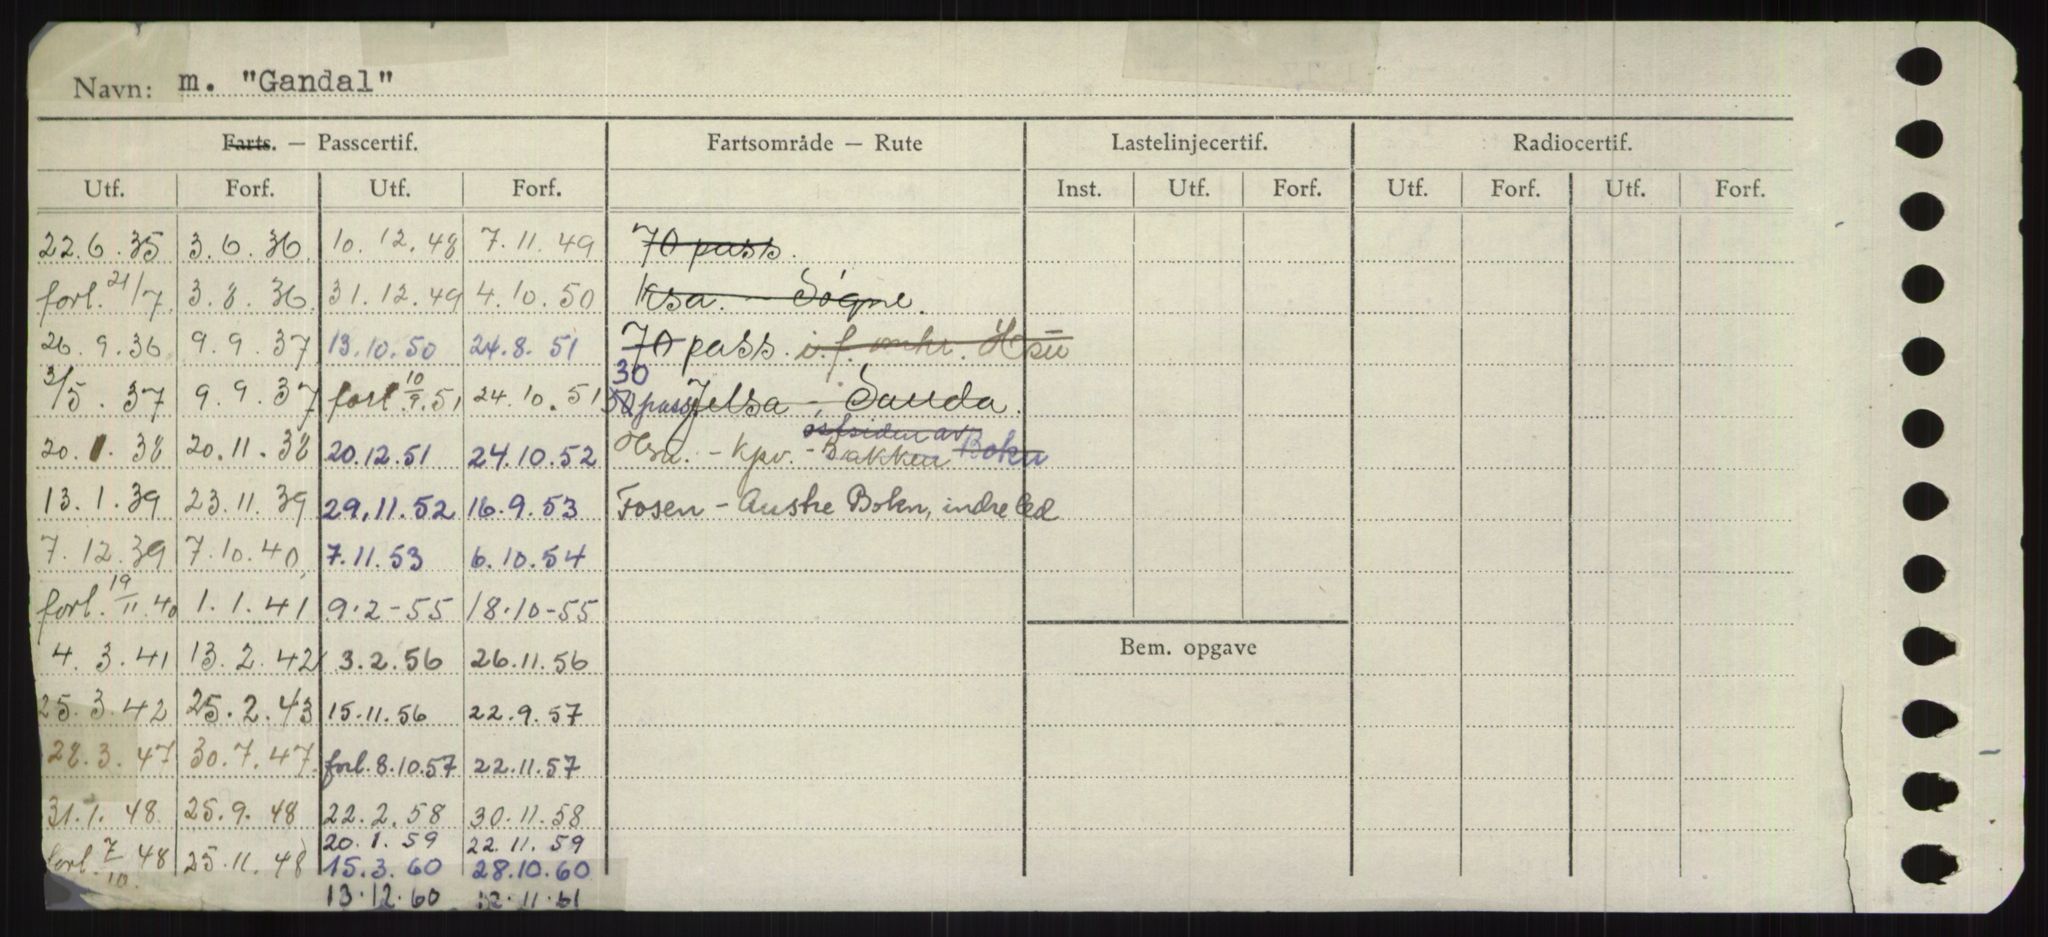 Navn: m. "Gandal"
Farts. — Passcertif. Fartsområde — Rute Lastelinjecertif. Radiocertif.
Utf. Forf. Utf. Forf. Inst. Utf. Forf. Utf. Forf. Utf. Forf.
22.6.35 3.6.36 10.12.48 7.11.49 70 pass.
forl. 21/7 3.8.36 31.12.49 4.10.50 Ksa. – Sogne.
26.9.36 9.9.37 13.10.50 24.8.51 70 pass. i.f.
30
3/5.37 9.9.37 forl 10/9.51 24.10.51 pass Jelsa – Sauda.
østsiden av
20.1.38 20.11.38 20.12.51 24.10.52 – Kpv. – Bakken Bokn
13.1.39 23.11.39 29.11.52 16.9.53 Fosen – Austre Bokn, indre led
7.12.39 7.10.40 7.11.53 6.10.54
forl. 19/11.40 1.1.41 9.2-55 18.10-55
4.3.41 13.2.42 3.2.56 26.11.56
Bem. opgave
25.3.42 25.2.43 15.11.56 22.9.57
28.3.47 30.7.47. forl. 8.10.57 22.11.57
31.1.48 25.9.48 22.2.58 30.11.58
20.1.59 22.11.59
forl. 7/10 48 25.11.48 15.3.60 28.10.60
13.12.60 12.11.61